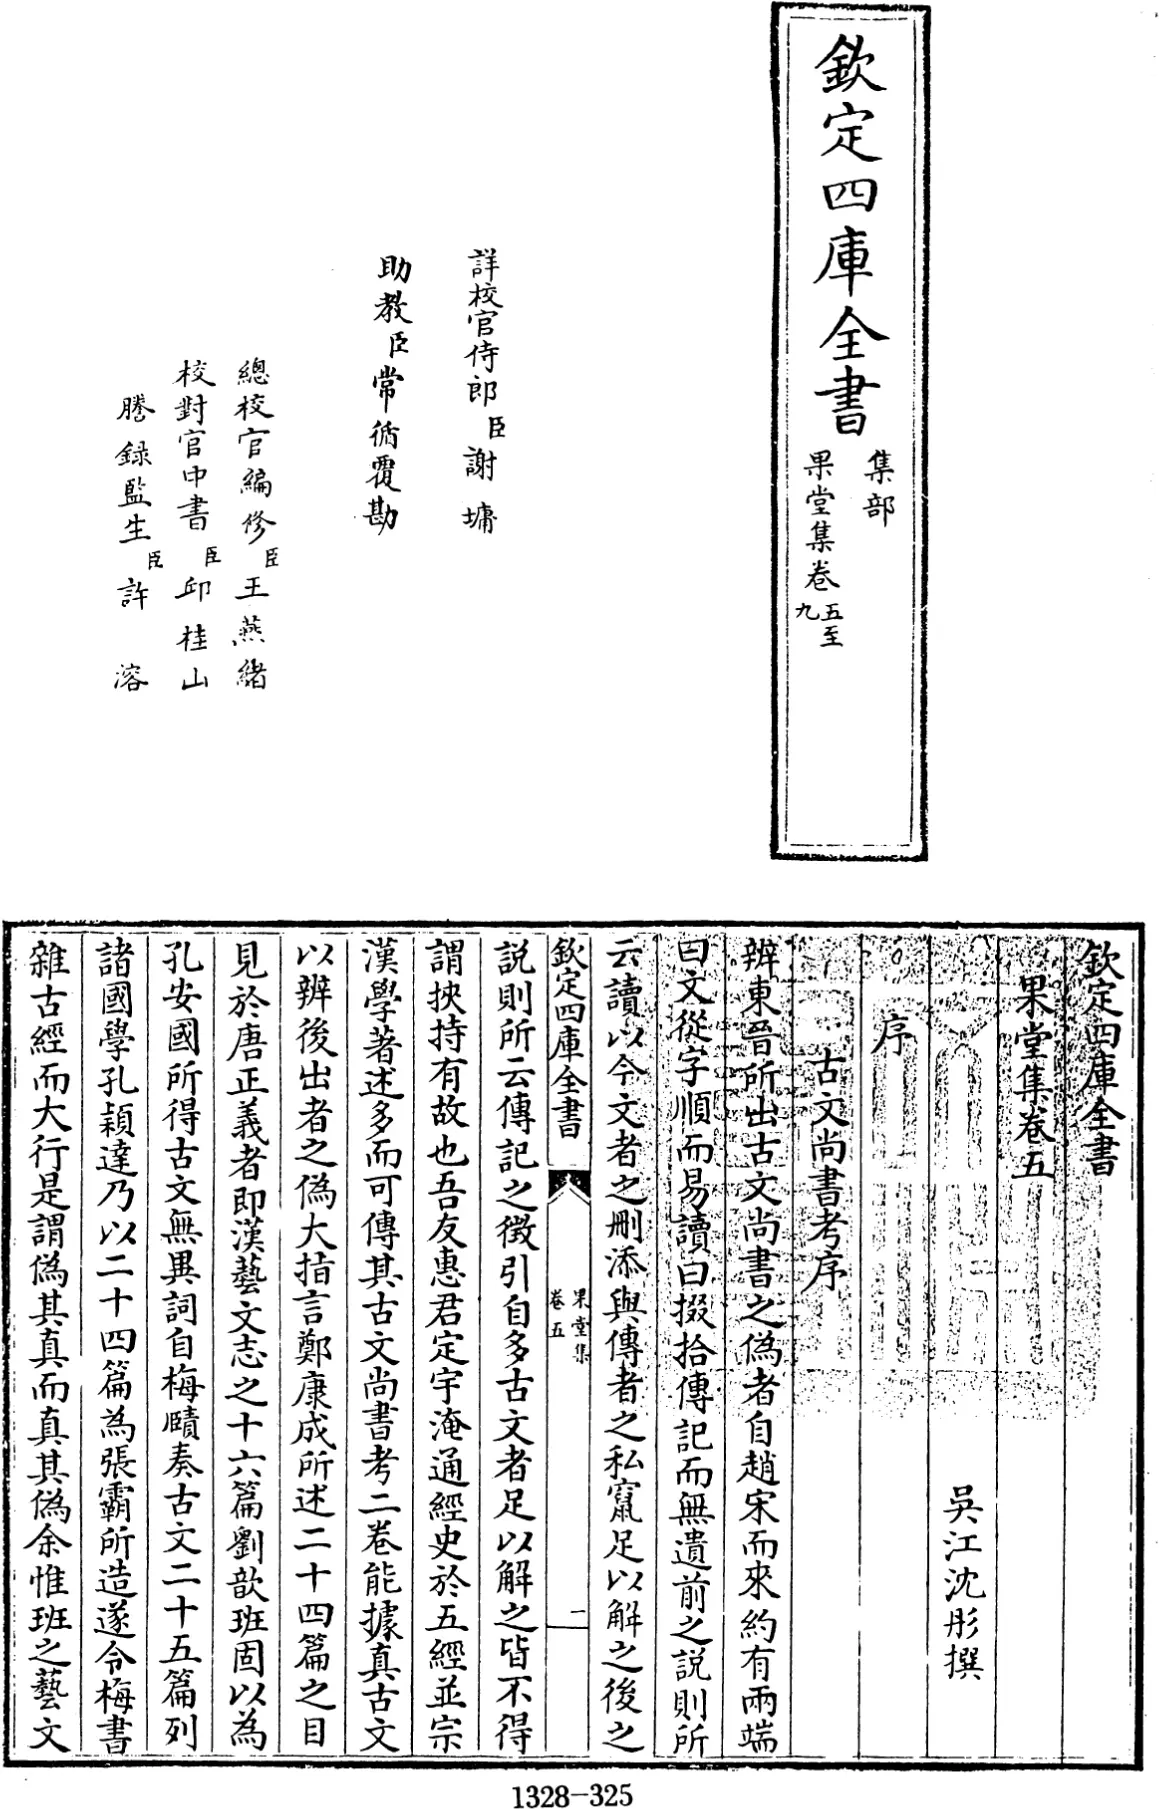 欽定四庫全書
集部
果堂集卷五至九
詳校官侍郎臣謝墉
助教臣常循覆勘
總校官編修臣王燕緒
校對官中書臣邱桂山
謄録監生臣許溶
欽定四庫全書
果堂集卷五
吳江沈彤撰
序
古文尚書考序
辨東晉所出古文尚書之偽者自趙宋而來約有兩端
曰文從字順而易讀曰掇拾傳記而無遺前之説則所
云讀以今文者之刪添與傳者之私竄足以解之後之
欽定四庫全書
果堂集
卷五
二
説則所云傳記之徴引自多古文者足以解之皆不得
謂挾持有故也吾友惠君定宇淹通經史於五經並宗
漢學著述多而可傳其古文尚書考二卷能據真古文
以辨後出者之偽大指言鄭康成所述二十四篇之目
見於唐正義者即漢藝文志之十六篇劉歆班固以為
孔安國所得古文無異詞自梅賾奏古文二十五篇列
諸國學孔穎達乃以二十四篇為張霸所造遂令梅書
雜古經而大行是謂偽其真而真其偽余惟班之藝文
1328-325